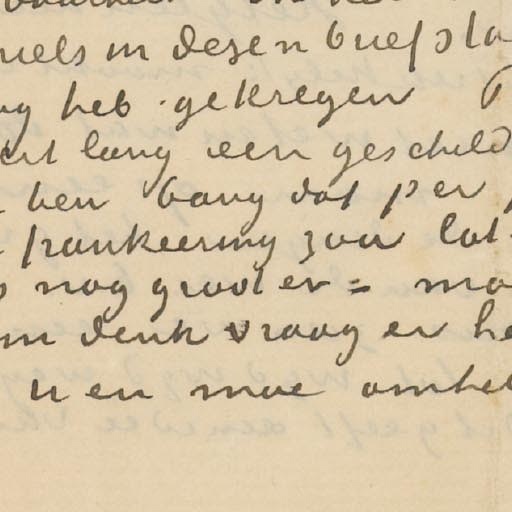 uels in dezen brief sla
ng heb gekregen
lang een geschild
ben bang dat per
frankeering zou lat
nog grooter = ma
denk vraag er he
U en moe omhel